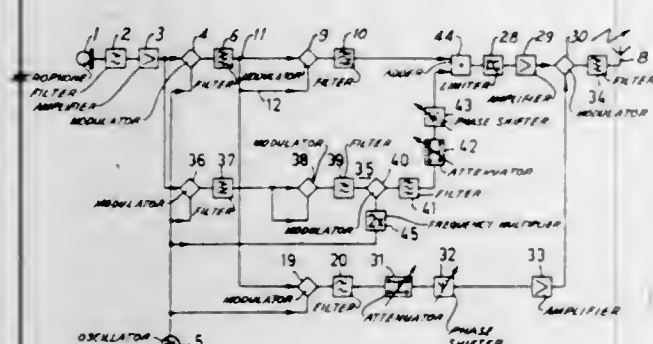 1 2 3 4 6 11 9 10 44 28 29 30
8
ROPHONE
FILTER
AMPLIFIER
MODULATOR
FILTER
MODULATOR
12
FILTER
ADDER
LIMITER
AMPLIFIER
MODULATOR
34
FILTER
43
PHASE SHIFTER
42
ATTENUATOR
36 37 38 39 35 40
MODULATOR
FILTER
MODULATOR
FILTER
41
FILTER
MODULATOR
2x
45
FREQUENCY MULTIPLIER
19 20 31 32 33
MODULATOR
FILTER
ATTENUATOR
PHASE
SHIFTER
AMPLIFIER
OSCILLATOR 5